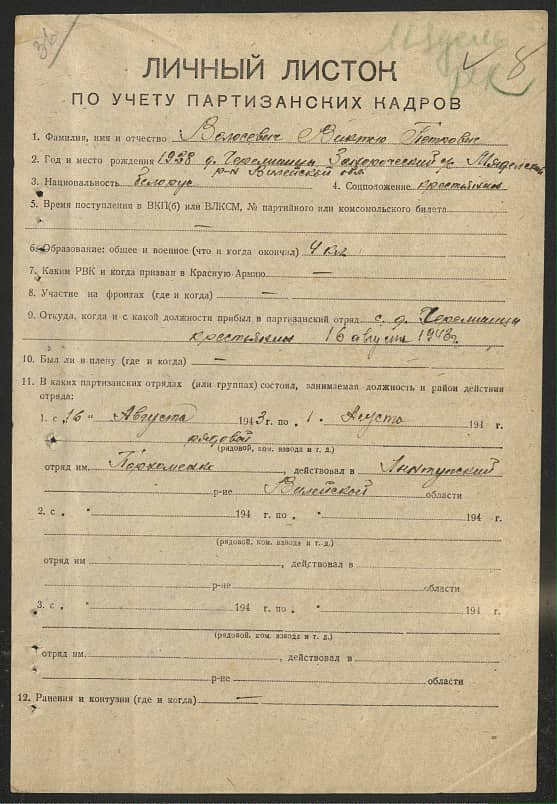 36
Мядель
РК
8
ЛИЧНЫЙ ЛИСТОК
ПО УЧЕТУ ПАРТИЗАНСКИХ КАДРОВ
1. Фамилия, имя и отчество Волосевич Виктю Петрович
2. Год и место рождения 1928 д. Черемшицы Мядельск
р-н Вилейской обл
3. Национальность белорус 4. Соцположение крестьянин
5. Время поступления в ВКП(б) или ВЛКСМ, № партийного или комсомольского билета
—
6. Образование: общее и военное (что и когда окончил) 4 кл
7. Каким РВК и когда призван в Красную Армию —
8. Участие на фронтах (где и когда) —
9. Откуда, когда и с какой должности прибыл в партизанский отряд с д. Черемшицы
крестьянин 16 августа 1943г.
10. Был ли в плену (где и когда) —
11. В каких партизанских отрядах (или группах) состоял, занимаемая должность и район действия
отряда:
1. с „16 " Августа 1943 г. по „1 " Августа 194 г.
рядовой
(рядовой, ком. взвода и т. д.)
отряд им. Пархоменко, действовал в
р-не Вилейской области
2. с „ " 194 г. по „ " 194 г.
(рядовой, ком. взвода и т. д.)
отряд им , действовал в
р-не области
3. с „ " 194 г. по „ " 194 г.
(рядовой, ком. взвода и т. д.)
отряд им. , действовал в
р-не области
12. Ранения и контузии (где и когда) —